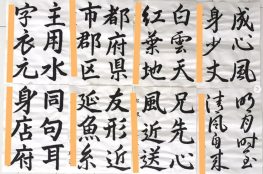 成心風
身少丈
白雲天
紅葉地
都府県
市郡区
主用水
字衣元
明月時至
清風自来
兄先心
風近送
友形近
延魚糸
同句耳
身店府